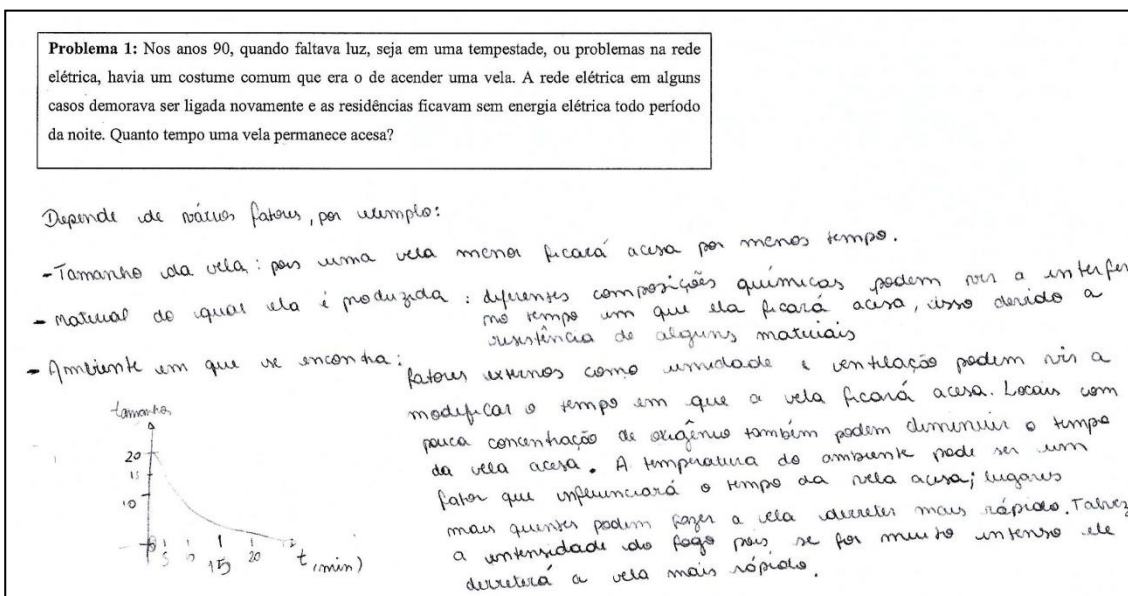 Problema 1: Nos anos 90, quando faltava luz, seja em uma tempestade, ou problemas na rede
elétrica, havia um costume comum que era o de acender uma vela. A rede elétrica em alguns
casos demorava ser ligada novamente e as residências ficavam sem energia elétrica todo período
da noite. Quanto tempo uma vela permanece acesa?
Depende de vários fatores, por exemplo:
- Tamanho da vela: pois uma vela menor ficará acesa por menos tempo.
- Material do qual ela é produzida: diferentes composições químicas podem vir a interferir
no tempo em que ela ficará acesa, isso devido a
resistência de alguns materiais
- Ambiente em que se encontra:
fatores externos como umidade e ventilação podem vir a
modificar o tempo em que a vela ficará acesa. Locais com
pouca concentração de oxigênio também podem diminuir o tempo
da vela acesa. A temperatura do ambiente pode ser um
fator que influenciará o tempo da vela acesa; lugares
mais quentes podem fazer a vela derreter mais rápido. Talvez
a intensidade do fogo pois se for muito intenso ele
derreterá a vela mais rápido.
tamanho
20
15
10
0 5 15 20 t (min)